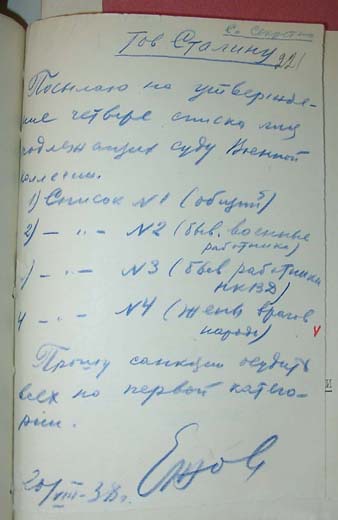 Сов. Секретно
Тов Сталину
221
Посылаю на утвержде-
ние четыре списка лиц
подлежащих суду Военной
коллегии.
1) Список №1 (общий)
2) – " – №2 (быв. военные
работники)
3) – " – №3 (быв работники
НКВД)
4 – " – №4 (жены врагов
народа)
Прошу санкции осудить
всех по первой катего-
рии.
Ежов
20/VIII-38г.
и